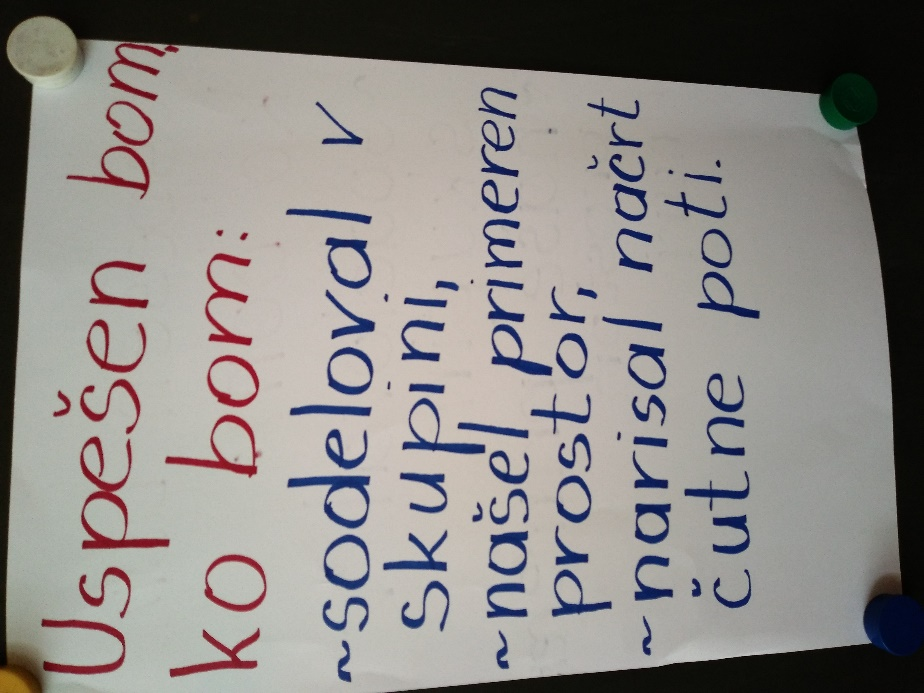 Uspešen bom,
ko bom:
~sodeloval v
skupini,
~našel primeren
prostor,
~narisal načrt
čutne poti.